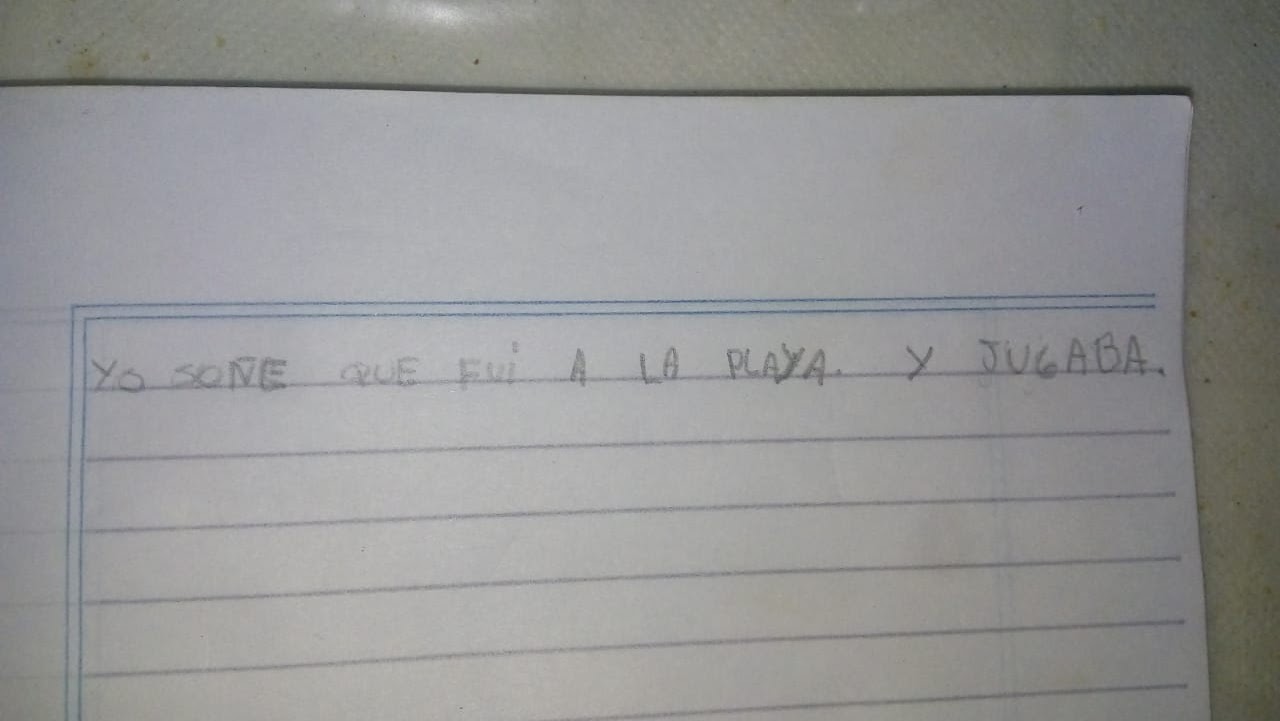 YO SOÑE QUE FUi A LA PLAYA. Y JUGABA.